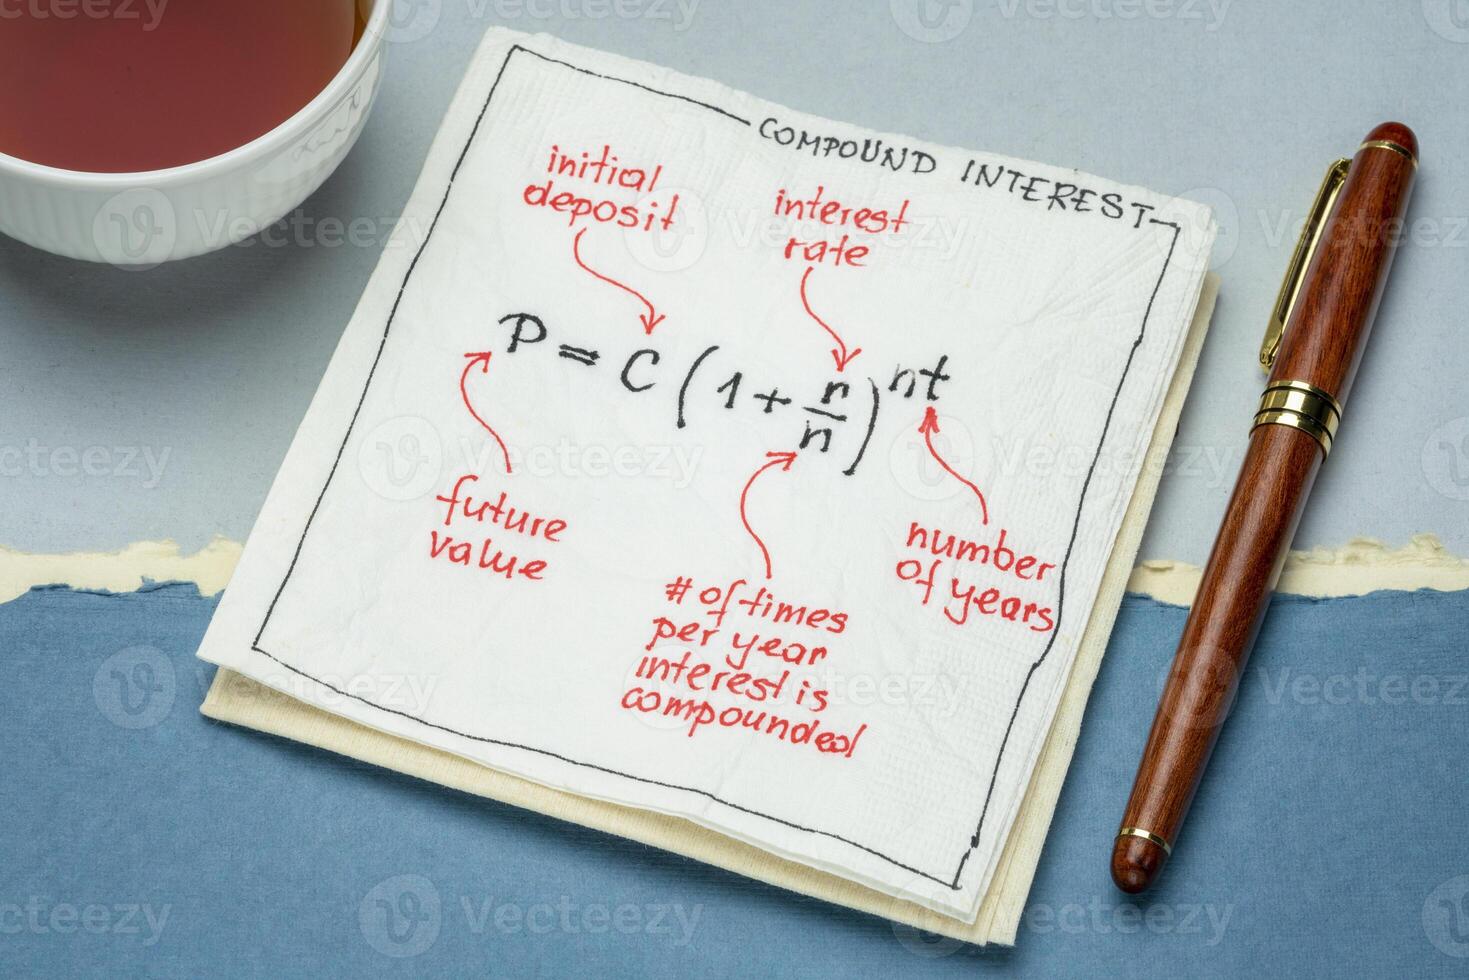 COMPOUND INTEREST
initial
deposit
interest
rate
P = C (1 + r/n)^nt
future
value
# of times
per year
interest is
compounded
number
of years
Vecteezy